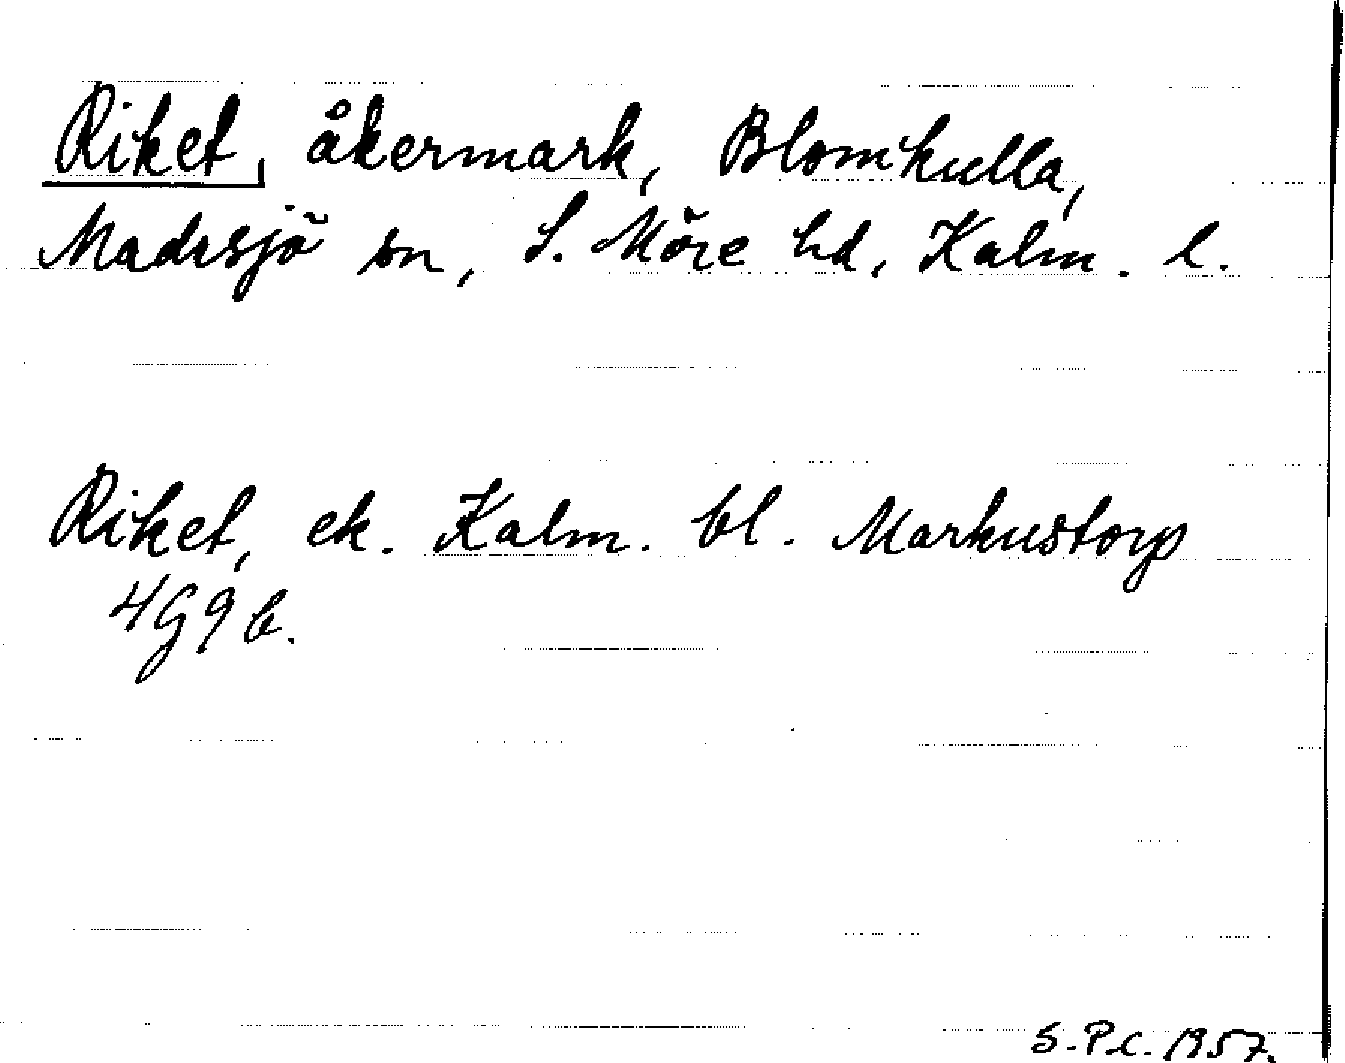 Riket, åkermark, Blomkulla,
Madesjö sn, S. Möre hd, Kalm. l.
Riket, ek. Kalm. bl. Markustorp
4G9b.
S.P.C. 1957.